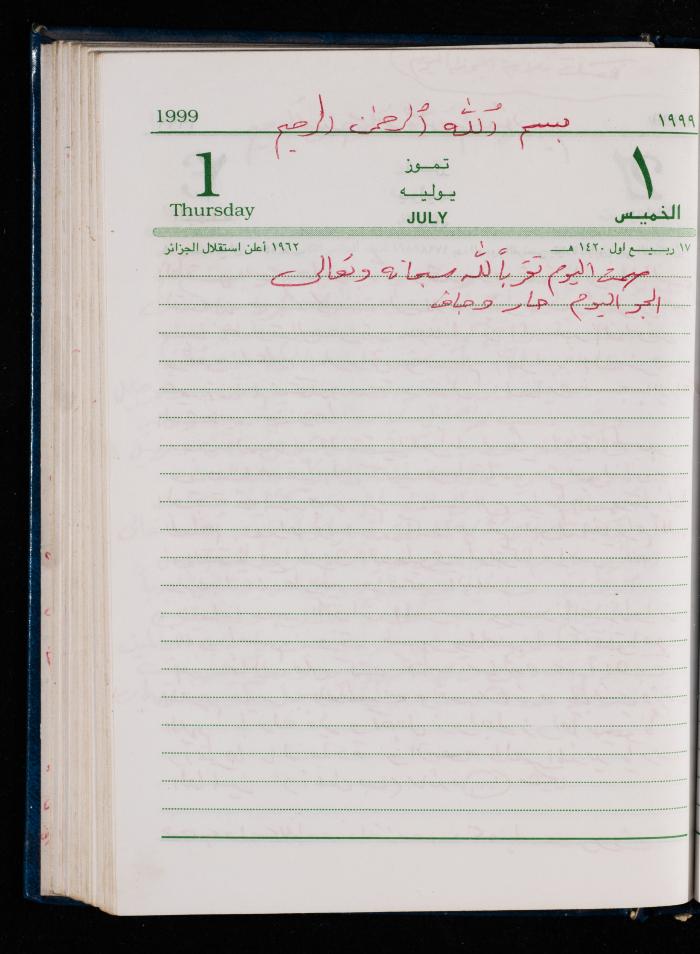 1999 ١٩٩٩
بسم الله الرحمن الرحيم
1 تمـوز ١
يـوليـه
Thursday JULY الخميس
١٧ ربـيـع اول ١٤٢٠ هـ ١٩٦٢ أعلن استقلال الجزائر
صمت اليوم تقرباً لله سبحانه وتعالى
الجو اليوم حار وجاف